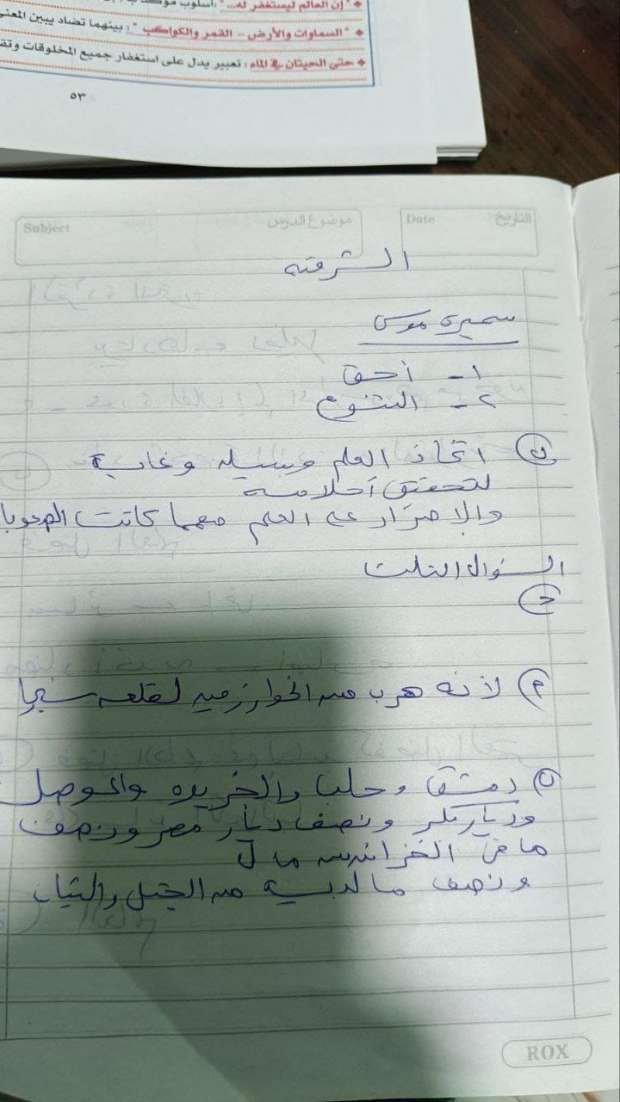 "إن العالم ليستغفر له..." : أسلوب
"السماوات والأرض - القمر والكواكب" : بينهما تضاد يبين المعنى
حتى الحيتان في الماء : تعبير يدل على استغفار جميع المخلوقات
٥٣
Subject موضوع الدرس Date التاريخ
الشرقيه
سميرة موسى
١- أحق
٢- التنوع
ب اتخاذ العلم وسيله وغاية
لتحقيق أحلامه
والاصرار على العلم مهما كانت الصعوبا
السؤال التلت
ج
م لأنه هرب من الخوارزميه لقلعه
ن دمشق وحلب والجزيره والموصل
وديار بكر ونصف ديار مصر ونصف
ما في الخزائن من مال
ونصف ما لديه من الخيل والثياب
ROX